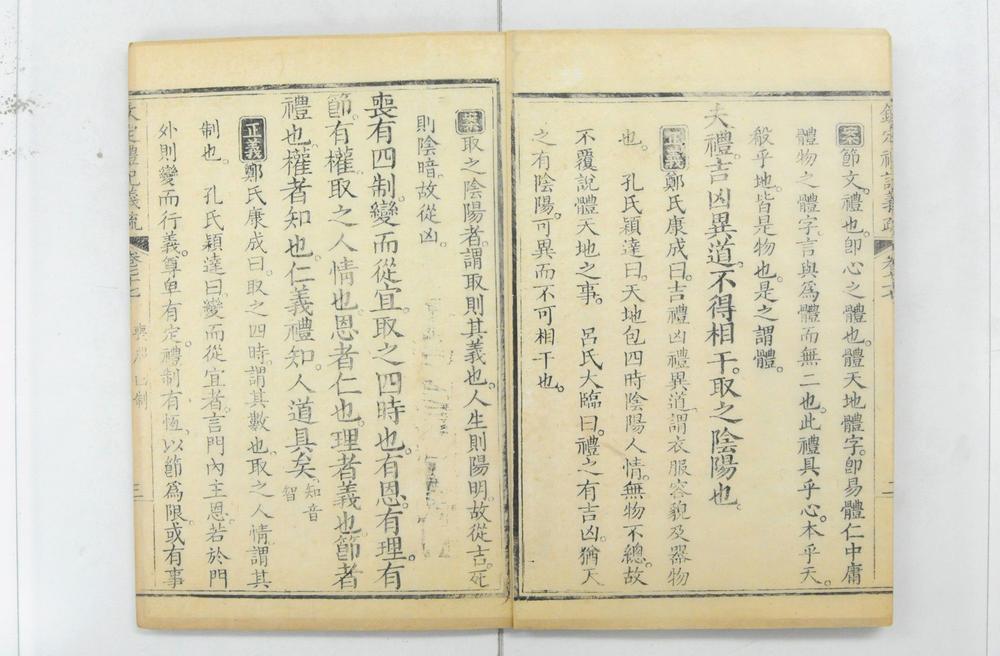 欽定禮記義疏 卷七十七 二
案 節文禮也。卽心之體也。體天地體字。卽易體仁中庸
體物之體字。言與爲體而無二也。此禮具乎心。本乎天。
殽乎地。皆是物也。是之謂體。
夫禮。吉凶異道。不得相干。取之陰陽也。
正義 鄭氏康成曰。吉禮凶禮異道。謂衣服容貌及器物
也。 孔氏穎達曰。天地包四時陰陽人情。無物不總。故
不覆說體天地之事。 呂氏大臨曰。禮之有吉凶。猶天
之有陰陽。可異而不可相干也。
案 取之陰陽者。謂取則其義也。人生則陽明。故從吉。死
則陰暗。故從凶。
喪有四制。變而從宜。取之四時也。有恩。有理。有
節。有權。取之人情也。恩者仁也。理者義也。節者
禮也。權者知也。仁義禮知。人道具矣。知音智
正義 鄭氏康成曰。取之四時。謂其數也。取之人情。謂其
制也。 孔氏穎達曰。變而從宜者。言門內主恩。若於門
外則變而行義。尊卑有定。禮制有恆。以節爲限。或有事
欽定禮記義疏 卷七十七 喪服四制 三